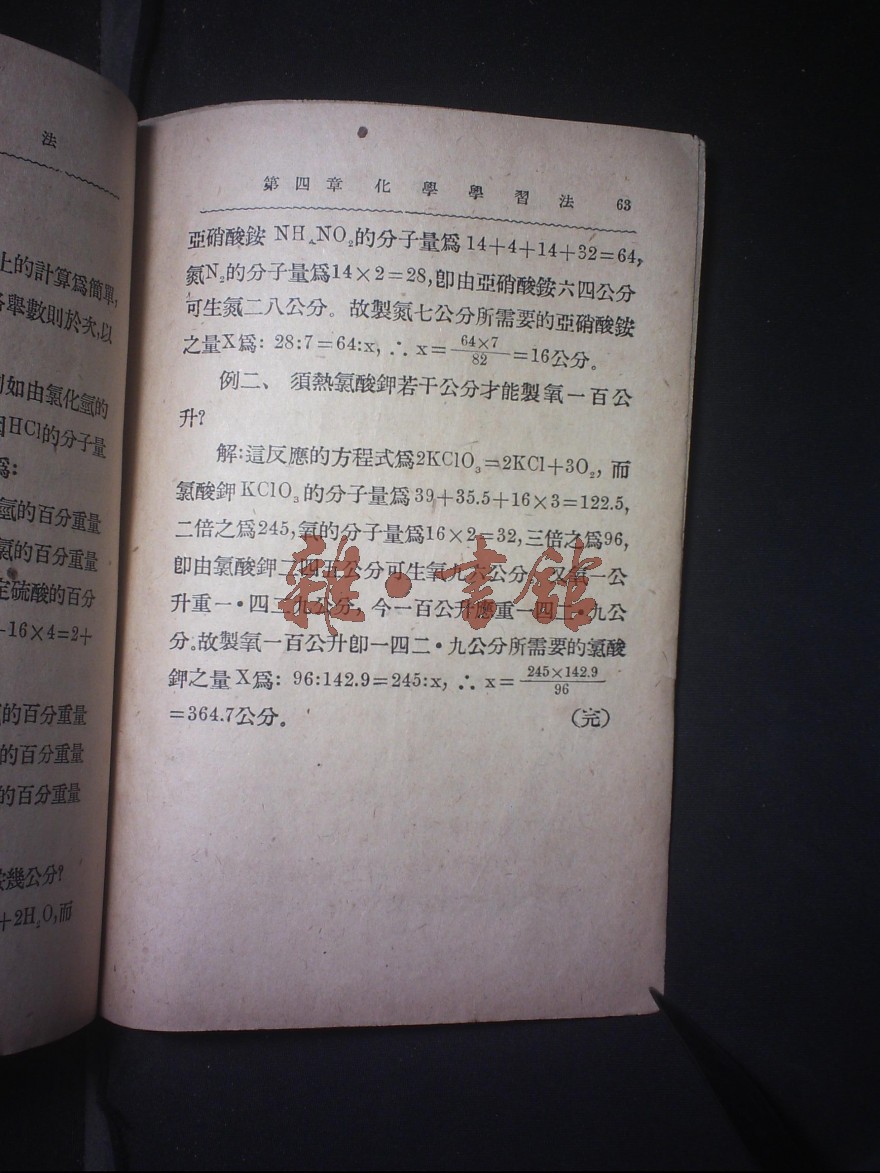 法
上的計算爲簡單,
各舉數則於次,以
如由氯化氫的
HCl的分子量
爲:
氫的百分重量
氯的百分重量
定硫酸的百分
16×4=2+
的百分重量
的百分重量
的百分重量
幾公分?
+2H₂O,而
第四章 化學學習法 63
亞硝酸銨 NH₄NO₂的分子量爲14+4+14+32=64,
氮N₂的分子量爲14×2=28,卽由亞硝酸銨六四公分
可生氮二八公分。故製氮七公分所需要的亞硝酸銨
之量X爲: 28:7=64:x, ∴ x=64×7/82=16公分。
例二、 須熱氯酸鉀若干公分才能製氧一百公
升?
解:這反應的方程式爲2KClO₃=2KCl+3O₂, 而
氯酸鉀 KClO₃的分子量爲39+35.5+16×3=122.5,
二倍之爲245,氧的分子量爲16×2=32,三倍之爲96,
卽由氯酸鉀二四五公分可生氧九六公分。又氧一公
升重一•四二九公分, 今一百公升應重一四二•九公
分。故製氧一百公升卽一四二•九公分所需要的氯酸
鉀之量X爲: 96:142.9=245:x, ∴ x=245×142.9/96
=364.7公分。 (完)
雜•書館